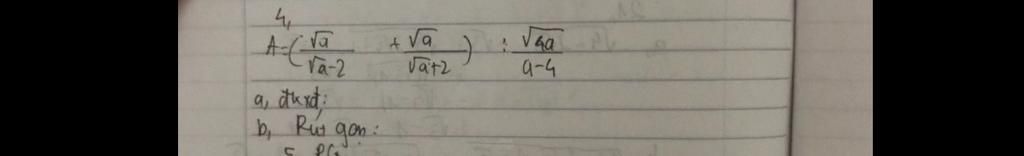 4,
A=(√a/(√a-2) + √a/(√a+2)) : √4a/(a-4)
a, đkxđ:
b, Rút gọn: